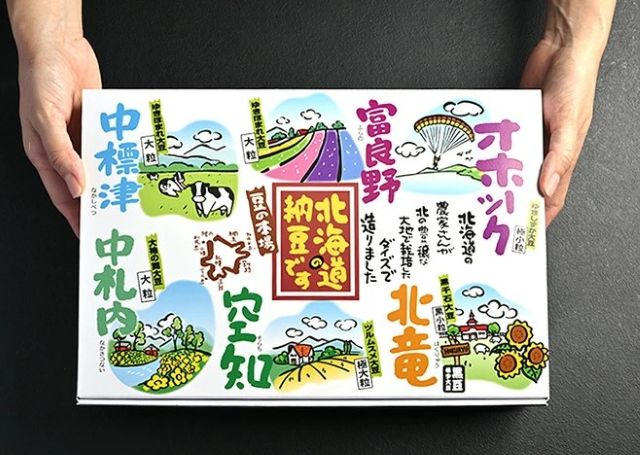 中標津
なかしべつ
ゆきほまれ大豆
大粒
ゆきほまれ大豆
大粒
富良野
ふらの
オホーツク
ゆきしずか大豆
極小粒
豆の本場
北海道の
納豆です
北海道の
農家さんが
北の豊穣な
大地で栽培した
ダイズで
造りました
中札内
なかさつない
大袖の舞大豆
大粒
空知
そらち
ツルムスメ大豆
極大粒
北竜
ほくりゅう
黒千石大豆
黒小粒
黒豆